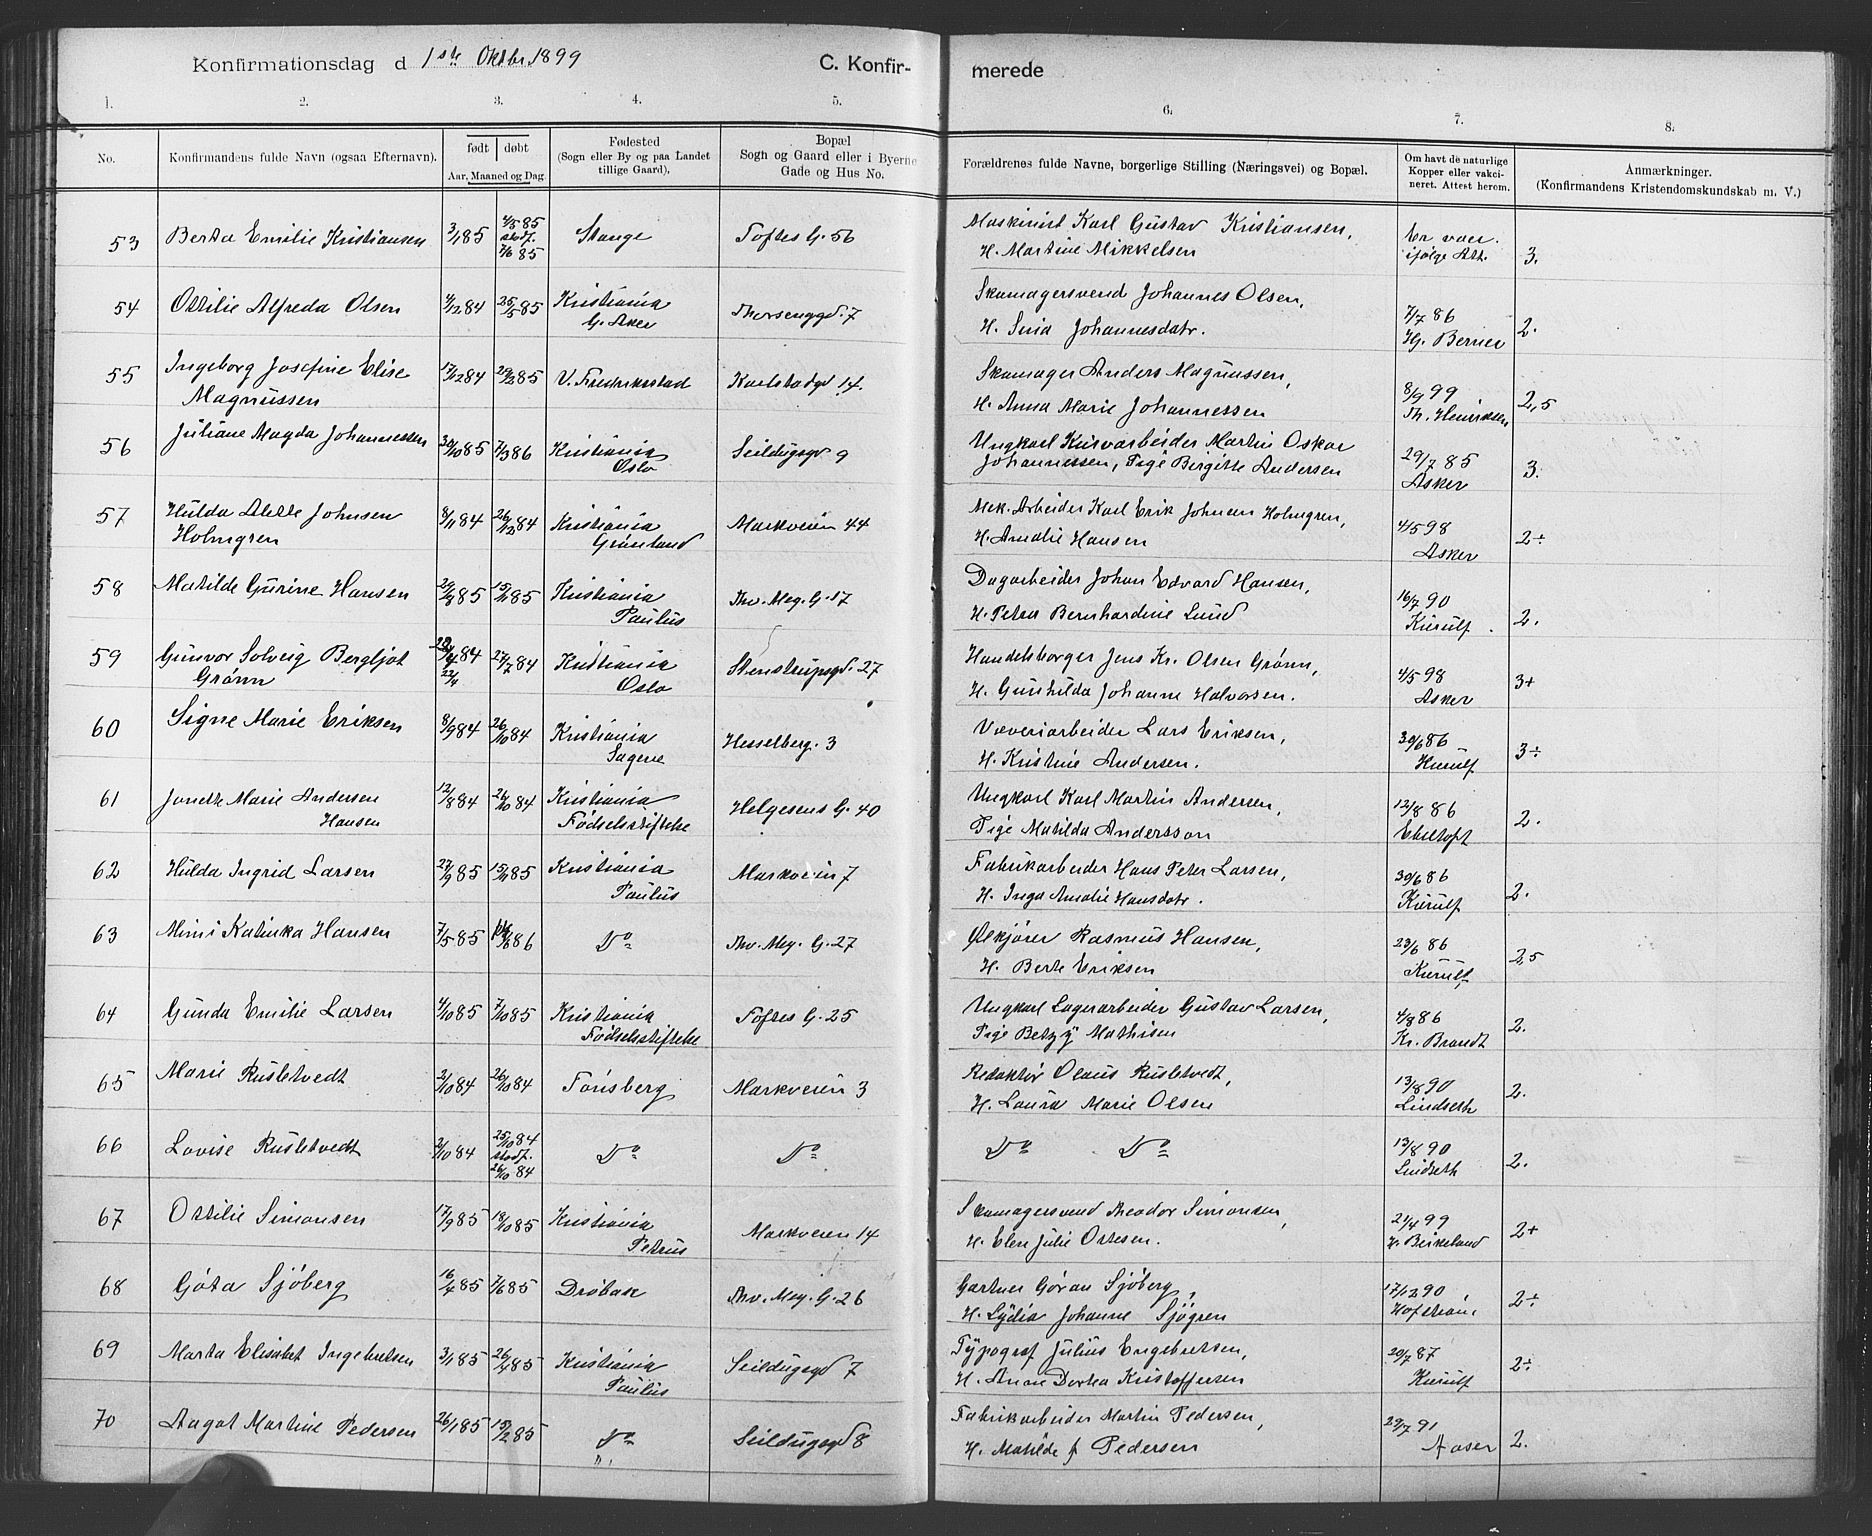 Konfirmationsdag d 1ste Oktbr. 1899 C. Konfir- merede
1. 2. 3. 4. 5. 6. 7. 8.
No. Konfirmandens fulde Navn (ogsaa Efternavn). født døbt Aar, Maaned og Dag. Fødested (Sogn eller By og paa Landet tillige Gaard). Bopæl Sogn og Gaard eller i Byerne Gade og Hus No. Forældrenes fulde Navne, borgerlige Stilling (Næringsvei) og Bopæl. Om havt de naturlige Kopper eller vakcineret. Attest herom. Anmærkninger. (Konfirmandens Kristendomskundskab m. V.)
53 Berta Emilie Kristiansen 3/1 85 4/3 85 stadf. 7/6 85 Stange Toftes G. 56 Maskinist Karl Gustav Kristiansen,
H. Martine Mikkelsen Er vacc. ifølge Att. 3.
54 Ottilie Alfreda Olsen 4/12 84 25/5 85 Kristiania G. Aker Thorsenggd. 7 Skomagersvend Johannes Olsen,
H. Sina Johannesdatr. 7/7 86 Hj. Berner 2.
55 Ingeborg Josefine Elise
Magnussen 17/12 84 29/2 85 V. Fredrikstad Karlstadgd 14. Skomager Anders Magnussen,
H. Anna Marie Johannessen 8/9 99 Th. Henriksen 2,5
56 Juliane Magda Johannessen 30/10 85 7/3 86 Kristiania Oslo Seildugsgd 9 Ungkarl Kurvarbeider Martin Oskar
Johannessen, Pige Birgitte Andersen 29/7 85 Asker 3.
57 Hulda Alette Johnsen
Holmgren 8/11 84 26/12 84 Kristiania Grønland Markveien 44 Mek. Arbeider Karl Erik Johnsen Holmgren,
H. Amalie Hansen 4/5 98 Asker 2÷
58 Matilde Gurine Hansen 29/8 85 15/11 85 Kristiania Paulus Thv. Mey. G. 17 Dagarbeider Johan Edvard Hansen,
H. Petra Bernhardine Lund 16/7 90 Kierulf. 2.
59 Gunvor Solveig Bergljot
Grønn 84 23/4 27/7 84 Kristiania Oslo Stenstrupsgd. 27 Handelsborger Jens Kr. Olsen Grønn,
H. Gunhilda Johanne Halvorsen. 4/5 98 Asker 3+
60 Signe Marie Eriksen 8/9 84 26/10 84 Kristiania Sagene Hesselberg. 3 Væveriarbeider Lars Eriksen,
H. Kristine Andersen. 30/6 86 Kierulf 3÷
61 Janette Marie Andersen
Hansen 12/8 84 26/10 84 Kristiania Fødselsstiftelse Helgesens G. 40 Ungkarl Karl Martin Andersen,
Pige Matilda Andersson 12/8 86 Ebeltoft 2.
62 Hulda Ingrid Larsen 27/9 85 15/11 85 Kristiania Paulus Markveien 7 Fabrikarbeider Hans Peter Larsen,
H. Inga Amalie Hansdatr. 30/6 86 Kierulf 2.
63 Mimi Katinka Hansen 7/5 85 86 Do Thv. Mey. G. 27 Ølkjører Rasmus Hansen,
H. Berte Eriksen 23/6 86 Kierulf 2,5
64 Gunda Emilie Larsen 4/10 85 7/10 85 Kristiania Fødselsstiftelse Toftes G. 25 Ungkarl Lagerarbeider Gustav Larsen,
Pige Betzy Mathisen 4/8 86 Kr. Brandt 2.
65 Marie Rusletvedt 2/10 84 26/10 84 Tønsberg Markveien 3 Redaktør Olaus Rusletvedt,
H. Laura Marie Olsen 13/8 90 Lindseth 2.
66 Lovise Rusletvedt 2/10 84 25/10 84 stadf. 26/10 84 Do Do Do Do 13/8 90 Lindseth 2.
67 Ottilie Simonsen 17/9 85 18/10 85 Kristiania Petrus Markveien 14 Skomagersvend Theodor Simonsen,
H. Elen Julie Ottesen. 21/4 99 H. Birkeland 2+
68 Göta Sjöberg 16/4 85 7/6 85 Drøbak Thv. Mey. G. 26 Gartner Göran Sjöberg,
H. Lydia Johanne Sjögren 17/12 90 2÷
69 Marta Elisabet Ingebretsen 3/1 85 26/4 85 Kristiania Paulus Seildugsgd 7 Typograf Julius Engebretsen,
H. Anne Dortea Kristoffersen 20/7 87 Kierulf 2÷
70 Aagot Martine Pedersen 26/1 85 15/2 85 Do Seildugsgd 8 Fabrikarbeider Martin Pedersen,
H. Matilde f. Pedersen 29/7 91 Aaser 2.